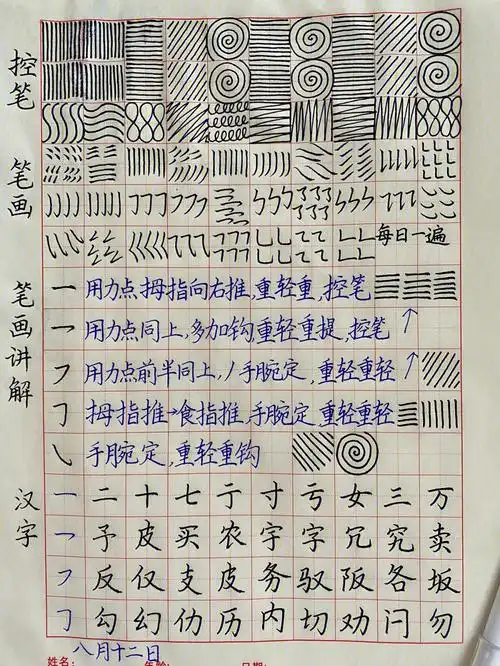 控笔
笔画
每日一遍
笔画讲解
一 用力点拇指向右推,重轻重,控笔
乛 用力点同上,多加钩,重轻重提,控笔
㇇ 用力点前半同上,丿手腕定,重轻重轻
𠃌 拇指推→食指推,手腕定,重轻重轻
㇂ 手腕定,重轻重钩
汉字
一 二 十 七 亍 寸 亏 女 三 万
乛 予 皮 买 农 字 字 冗 究 卖
㇇ 反 仅 支 皮 务 驭 阪 各 坂
𠃌 勾 幻 仂 历 内 切 劝 闩 勿
八月十二日
姓名: